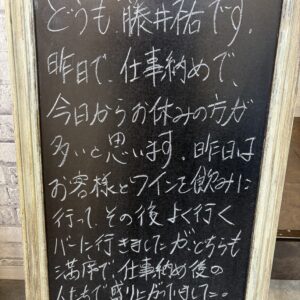 どうも、藤井祐です。
昨日で、仕事納めで、
今日からお休みの方が
多いと思います。昨日は
お客様とワインを飲みに
行って、その後よく行く
バーに行きましたが、どちらも
満席で、仕事納め後の
人たちで盛り上がってました。